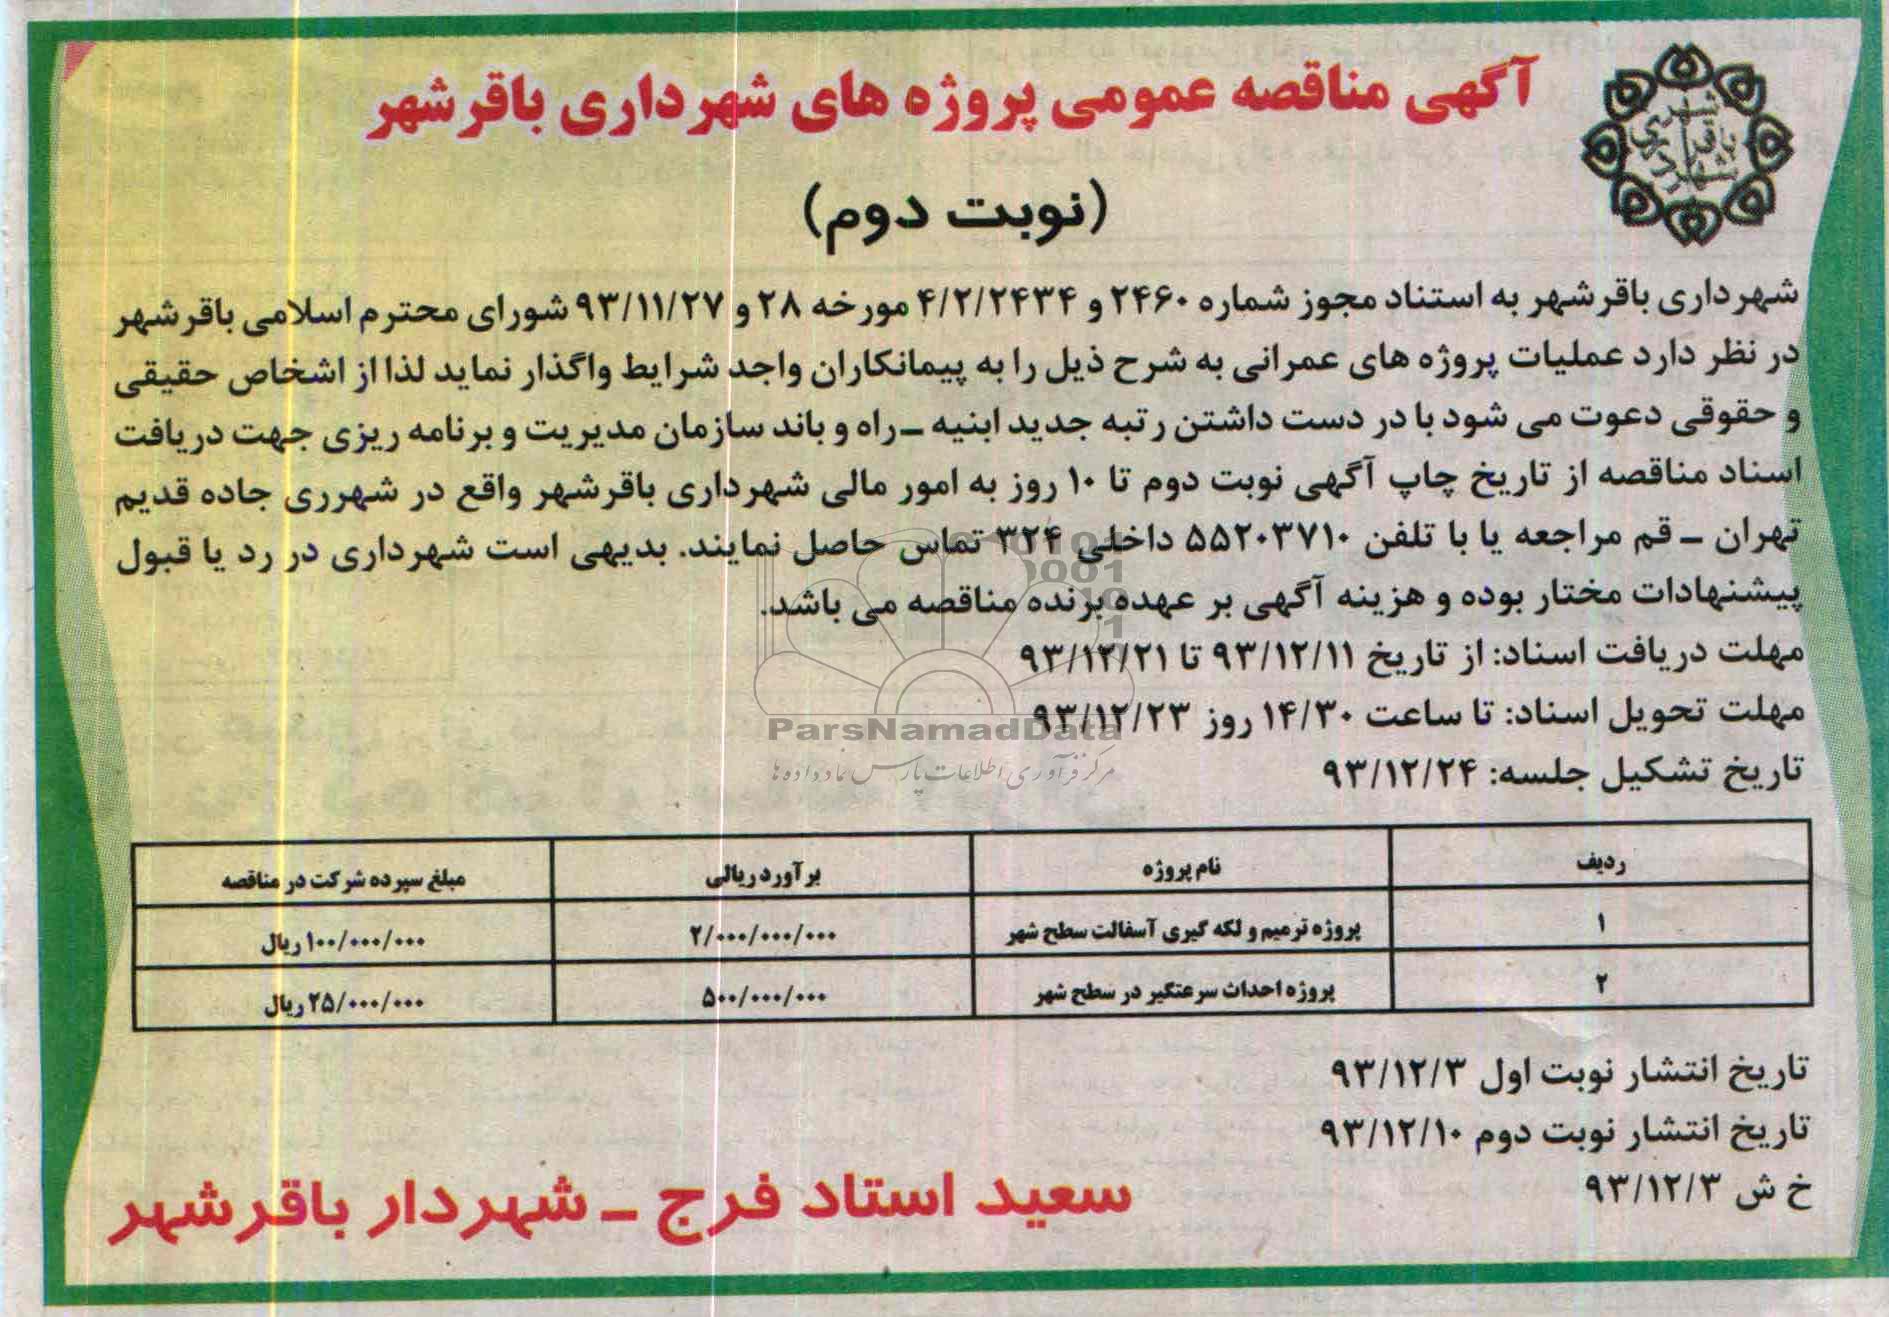 شهرداری باقرشهر
آگهی مناقصه عمومی پروژه های شهرداری باقرشهر
(نوبت دوم)
شهرداری باقرشهر به استناد مجوز شماره ۲۴۶۰ و ۴/۲/۲۴۳۴ مورخه ۲۸ و ۹۳/۱۱/۲۷ شورای محترم اسلامی باقرشهر
در نظر دارد عملیات پروژه های عمرانی به شرح ذیل را به پیمانکاران واجد شرایط واگذار نماید لذا از اشخاص حقیقی
و حقوقی دعوت می شود با در دست داشتن رتبه جدید ابنیه ـ راه و باند سازمان مدیریت و برنامه ریزی جهت دریافت
اسناد مناقصه از تاریخ چاپ آگهی نوبت دوم تا ۱۰ روز به امور مالی شهرداری باقرشهر واقع در شهرری جاده قدیم
تهران ـ قم مراجعه یا با تلفن ۵۵۲۰۳۷۱۰ داخلی ۳۲۴ تماس حاصل نمایند. بدیهی است شهرداری در رد یا قبول
پیشنهادات مختار بوده و هزینه آگهی بر عهده برنده مناقصه می باشد.
مهلت دریافت اسناد: از تاریخ ۹۳/۱۲/۱۱ تا ۹۳/۱۲/۲۱
مهلت تحویل اسناد: تا ساعت ۱۴/۳۰ روز ۹۳/۱۲/۲۳
ParsNamadData
مرکز فرآوری اطلاعات پارس نماد داده ها
تاریخ تشکیل جلسه: ۹۳/۱۲/۲۴
ردیف نام پروژه برآورد ریالی مبلغ سپرده شرکت در مناقصه
۱ پروژه ترمیم و لکه گیری آسفالت سطح شهر ۲/۰۰۰/۰۰۰/۰۰۰ ۱۰۰/۰۰۰/۰۰۰ ریال
۲ پروژه احداث سرعتگیر در سطح شهر ۵۰۰/۰۰۰/۰۰۰ ۲۵/۰۰۰/۰۰۰ ریال
تاریخ انتشار نوبت اول ۹۳/۱۲/۳
تاریخ انتشار نوبت دوم ۹۳/۱۲/۱۰
خ ش ۹۳/۱۲/۳
سعید استاد فرج ـ شهردار باقرشهر